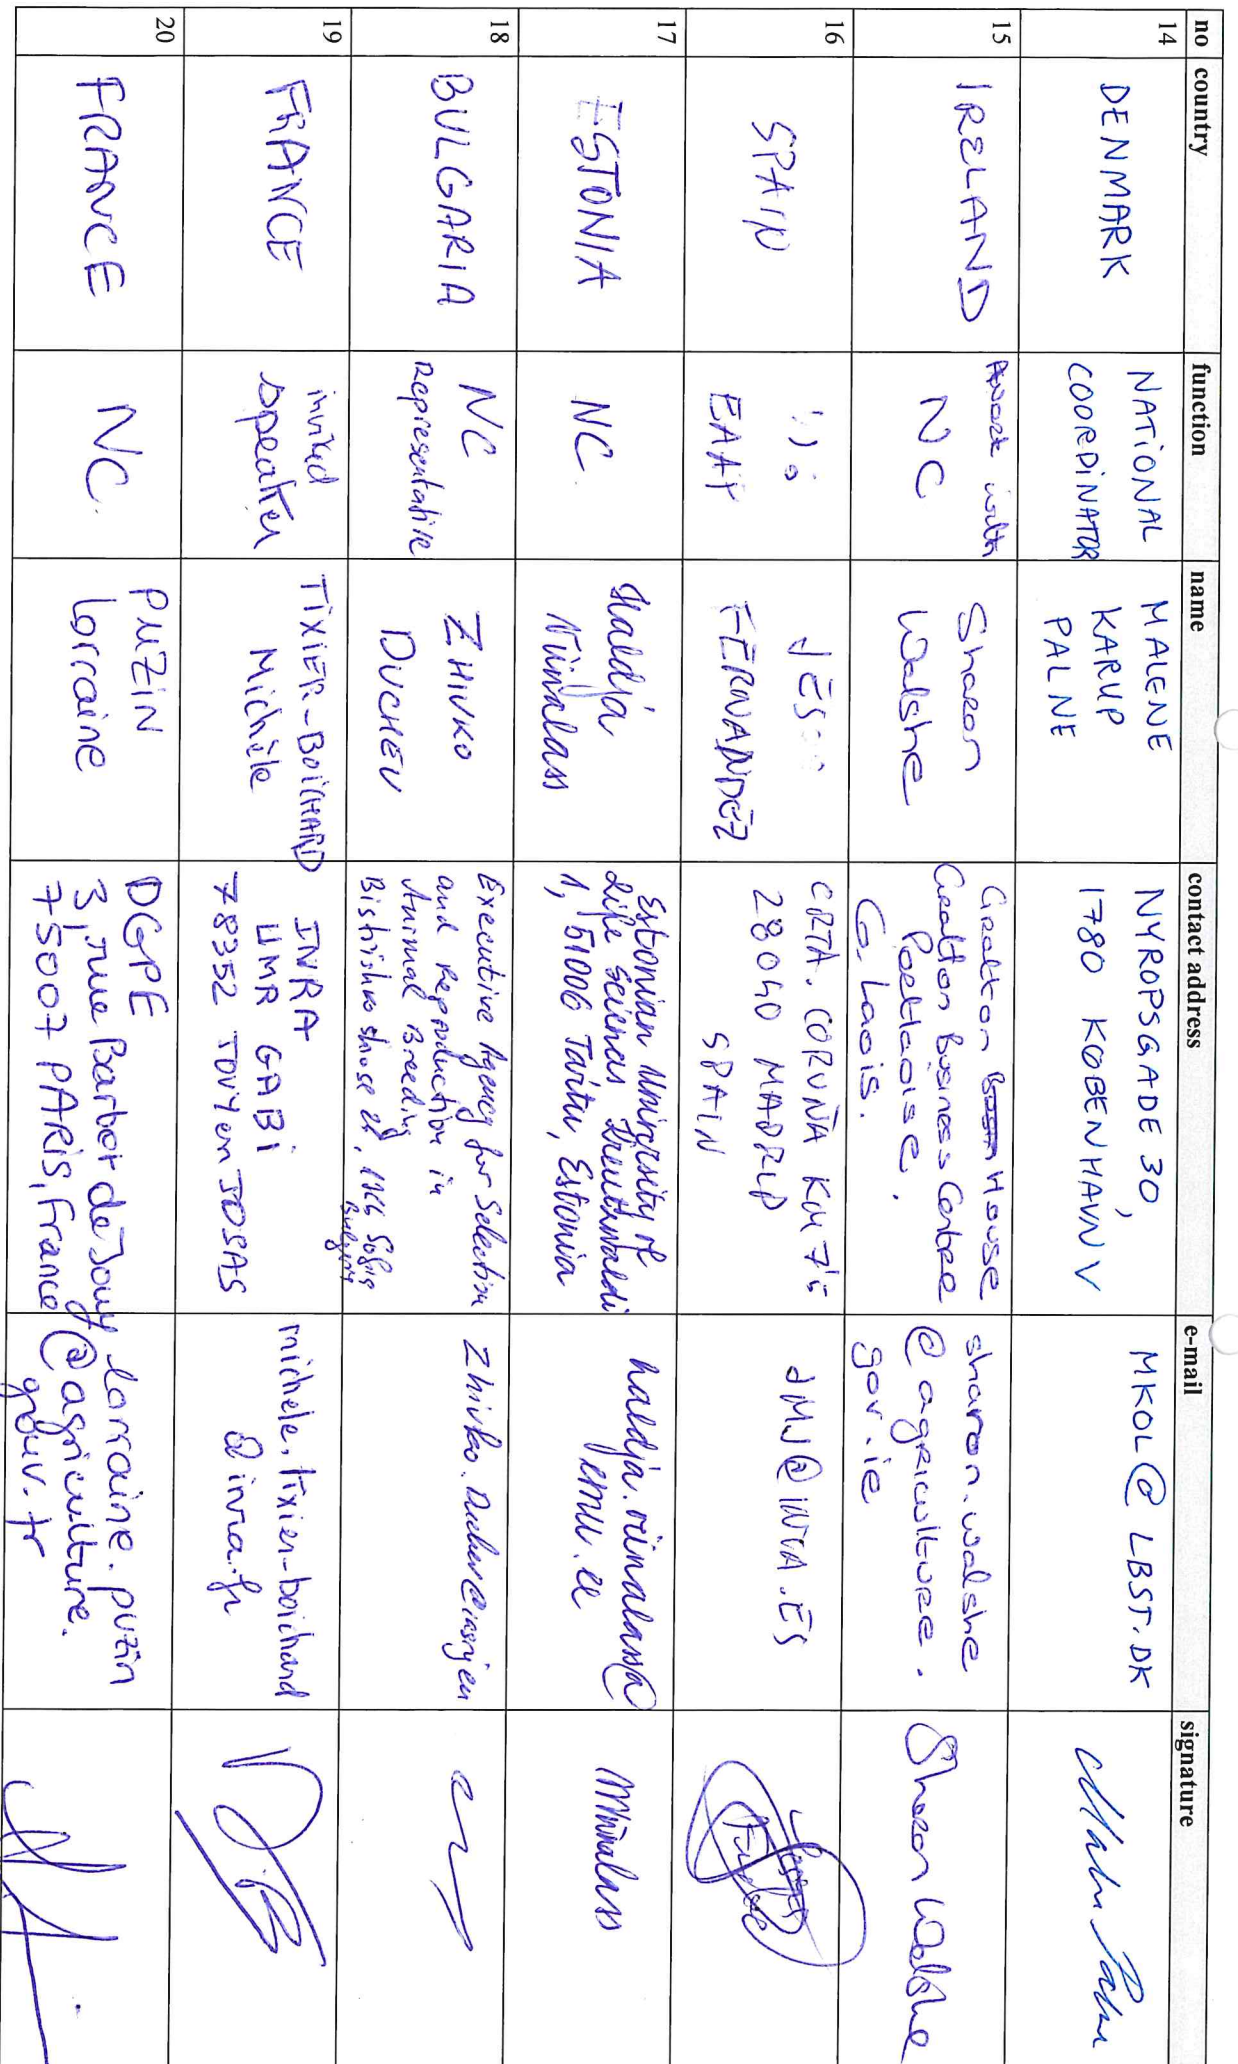 no country function name contact address e-mail signature
14 DENMARK
NATIONAL
COORDINATOR
MALENE
KARUP
PALNE
NYROPSGADE 30,
1780 KØBENHAVN V
MKOL@LBST.DK
15 IRELAND
with
NC
Sharon
Walshe
Grattan House
Grattan Business Centre
Portlaoise,
Co. Laois.
sharon.walshe
@agriculture.
gov.ie
Sharon Walshe
16 SPAIN
FERNANDEZ
CRTA. CORUÑA KM 7'5
28040 MADRID
SPAIN
17 ESTONIA
NC.
Haldja
Viinalass
Estonian University of
Life Sciences Kreutzwaldi
1, 51006 Tartu, Estonia
haldja.viinalass@
emu.ee
18 BULGARIA
NC
Representative
ZHIVKO
DUCHEV
Executive Agency for Selection
and Reproduction in
Animal Breeding
Sofia
Bulgaria
19 FRANCE
invited
speaker
TIXIER-BOICHARD
Michèle
INRA
UMR GABI
78352 JOUY en JOSAS
michele.tixier-boichard
@inra.fr
20 FRANCE
NC.
PUZIN
Lorraine
DGPE
3, rue Barbet de Jouy
75007 PARIS, France
lorraine.puzin
@agriculture.
gouv.fr